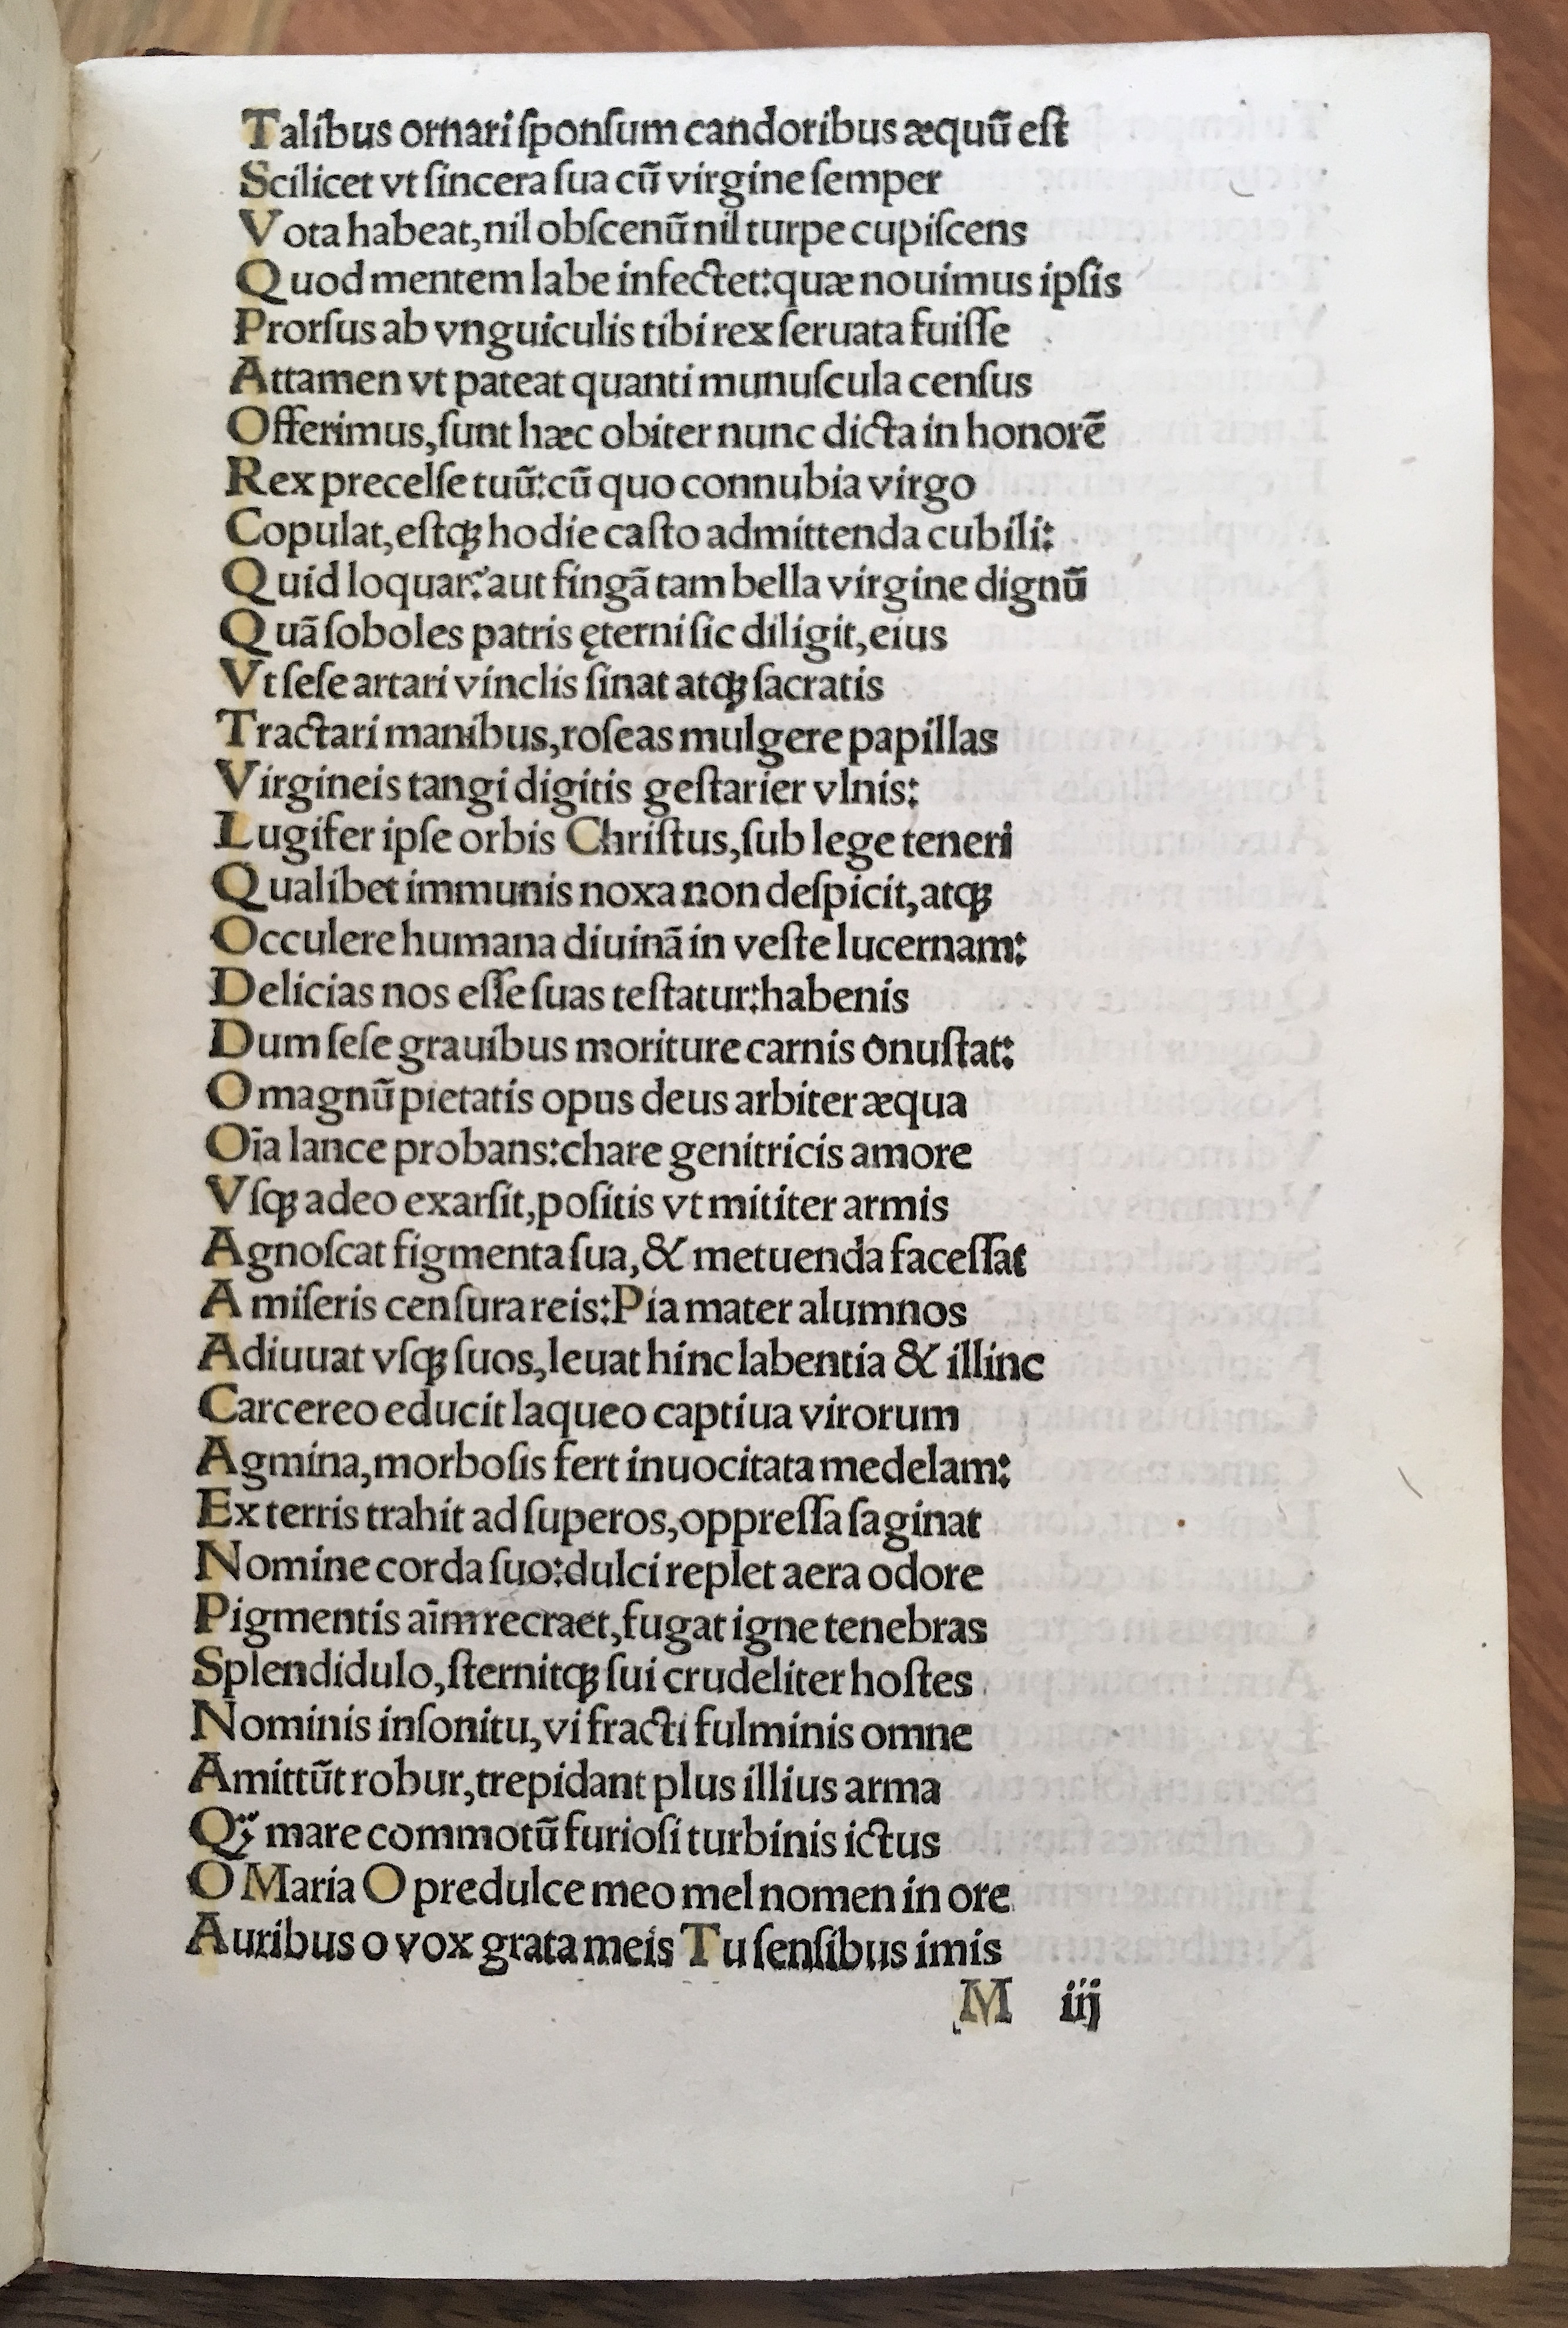 Talibus ornari ſponſum candoribus æquū eſt
Scilicet vt ſincera ſua cū virgine ſemper
Vota habeat, nil obſcenū nil turpe cupiſcens
Quod mentem labe infectet: quæ nouimus ipſis
Prorſus ab vnguiculis tibi rex ſeruata fuiſſe
Attamen vt pateat quanti munuſcula cenſus
Offerimus, ſunt hæc obiter nunc dicta in honorē
Rex precelſe tuū: cū quo connubia virgo
Copulat, eſtqꝫ hodie caſto admittenda cubili:
Quid loquar: aut fingā tam bella virgine dignū
Quā ſoboles patris ęterni ſic diligit, eius
Vt ſeſe artari vinclis ſinat atqꝫ ſacratis
Tractari manibus, roſeas mulgere papillas
Virgineis tangi digitis geſtarier vlnis:
Lugifer ipſe orbis Chriſtus, ſub lege teneri
Qualibet immunis noxa non deſpicit, atqꝫ
Occulere humana diuinā in veſte lucernam:
Delicias nos eſſe ſuas teſtatur: habenis
Dum ſeſe grauibus moriture carnis onuſtat:
O magnū pietatis opus deus arbiter æqua
Oīa lance probans: chare genitricis amore
Vſqꝫ adeo exarſit, poſitis vt mititer armis
Agnoſcat figmenta ſua, & metuenda faceſſat
A miſeris cenſura reis: Pia mater alumnos
Adiuuat vſqꝫ ſuos, leuat hinc labentia & illinc
Carcereo educit laqueo captiua virorum
Agmina, morboſis fert inuocitata medelam:
Ex terris trahit ad ſuperos, oppreſſa ſaginat
Nomine corda ſuo: dulci replet aera odore
Pigmentis aīm recraet, fugat igne tenebras
Splendidulo, ſternitqꝫ ſui crudeliter hoſtes
Nominis inſonitu, vi fracti fulminis omne
Amittūt robur, trepidant plus illius arma
Qꝫ mare commotū furioſi turbinis ictus
O Maria O predulce meo mel nomen in ore
Auribus o vox grata meis Tu ſenſibus imis
M iij